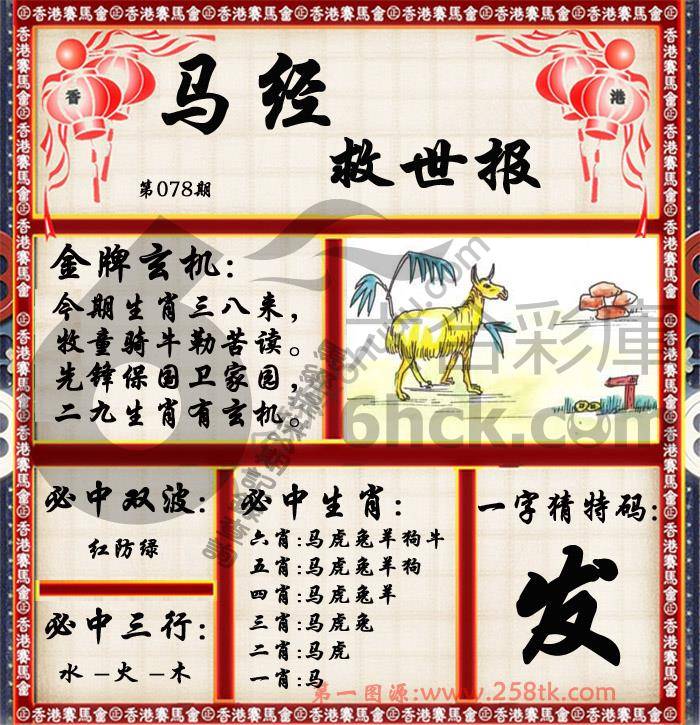 香港賽馬會
香
港
马经
救世报
第078期
金牌玄机:
今期生肖三八来,
牧童骑牛勤苦读。
先锋保国卫家园,
二九生肖有玄机。
六合彩庫
6hck.com
必中双波:
红防绿
必中三行:
水–火–木
必中生肖:
六肖:马虎兔羊狗牛
五肖:马虎兔羊狗
四肖:马虎兔羊
三肖:马虎兔
二肖:马虎
一肖:马
一字猜特码:
发
第一图源:www.258tk.com